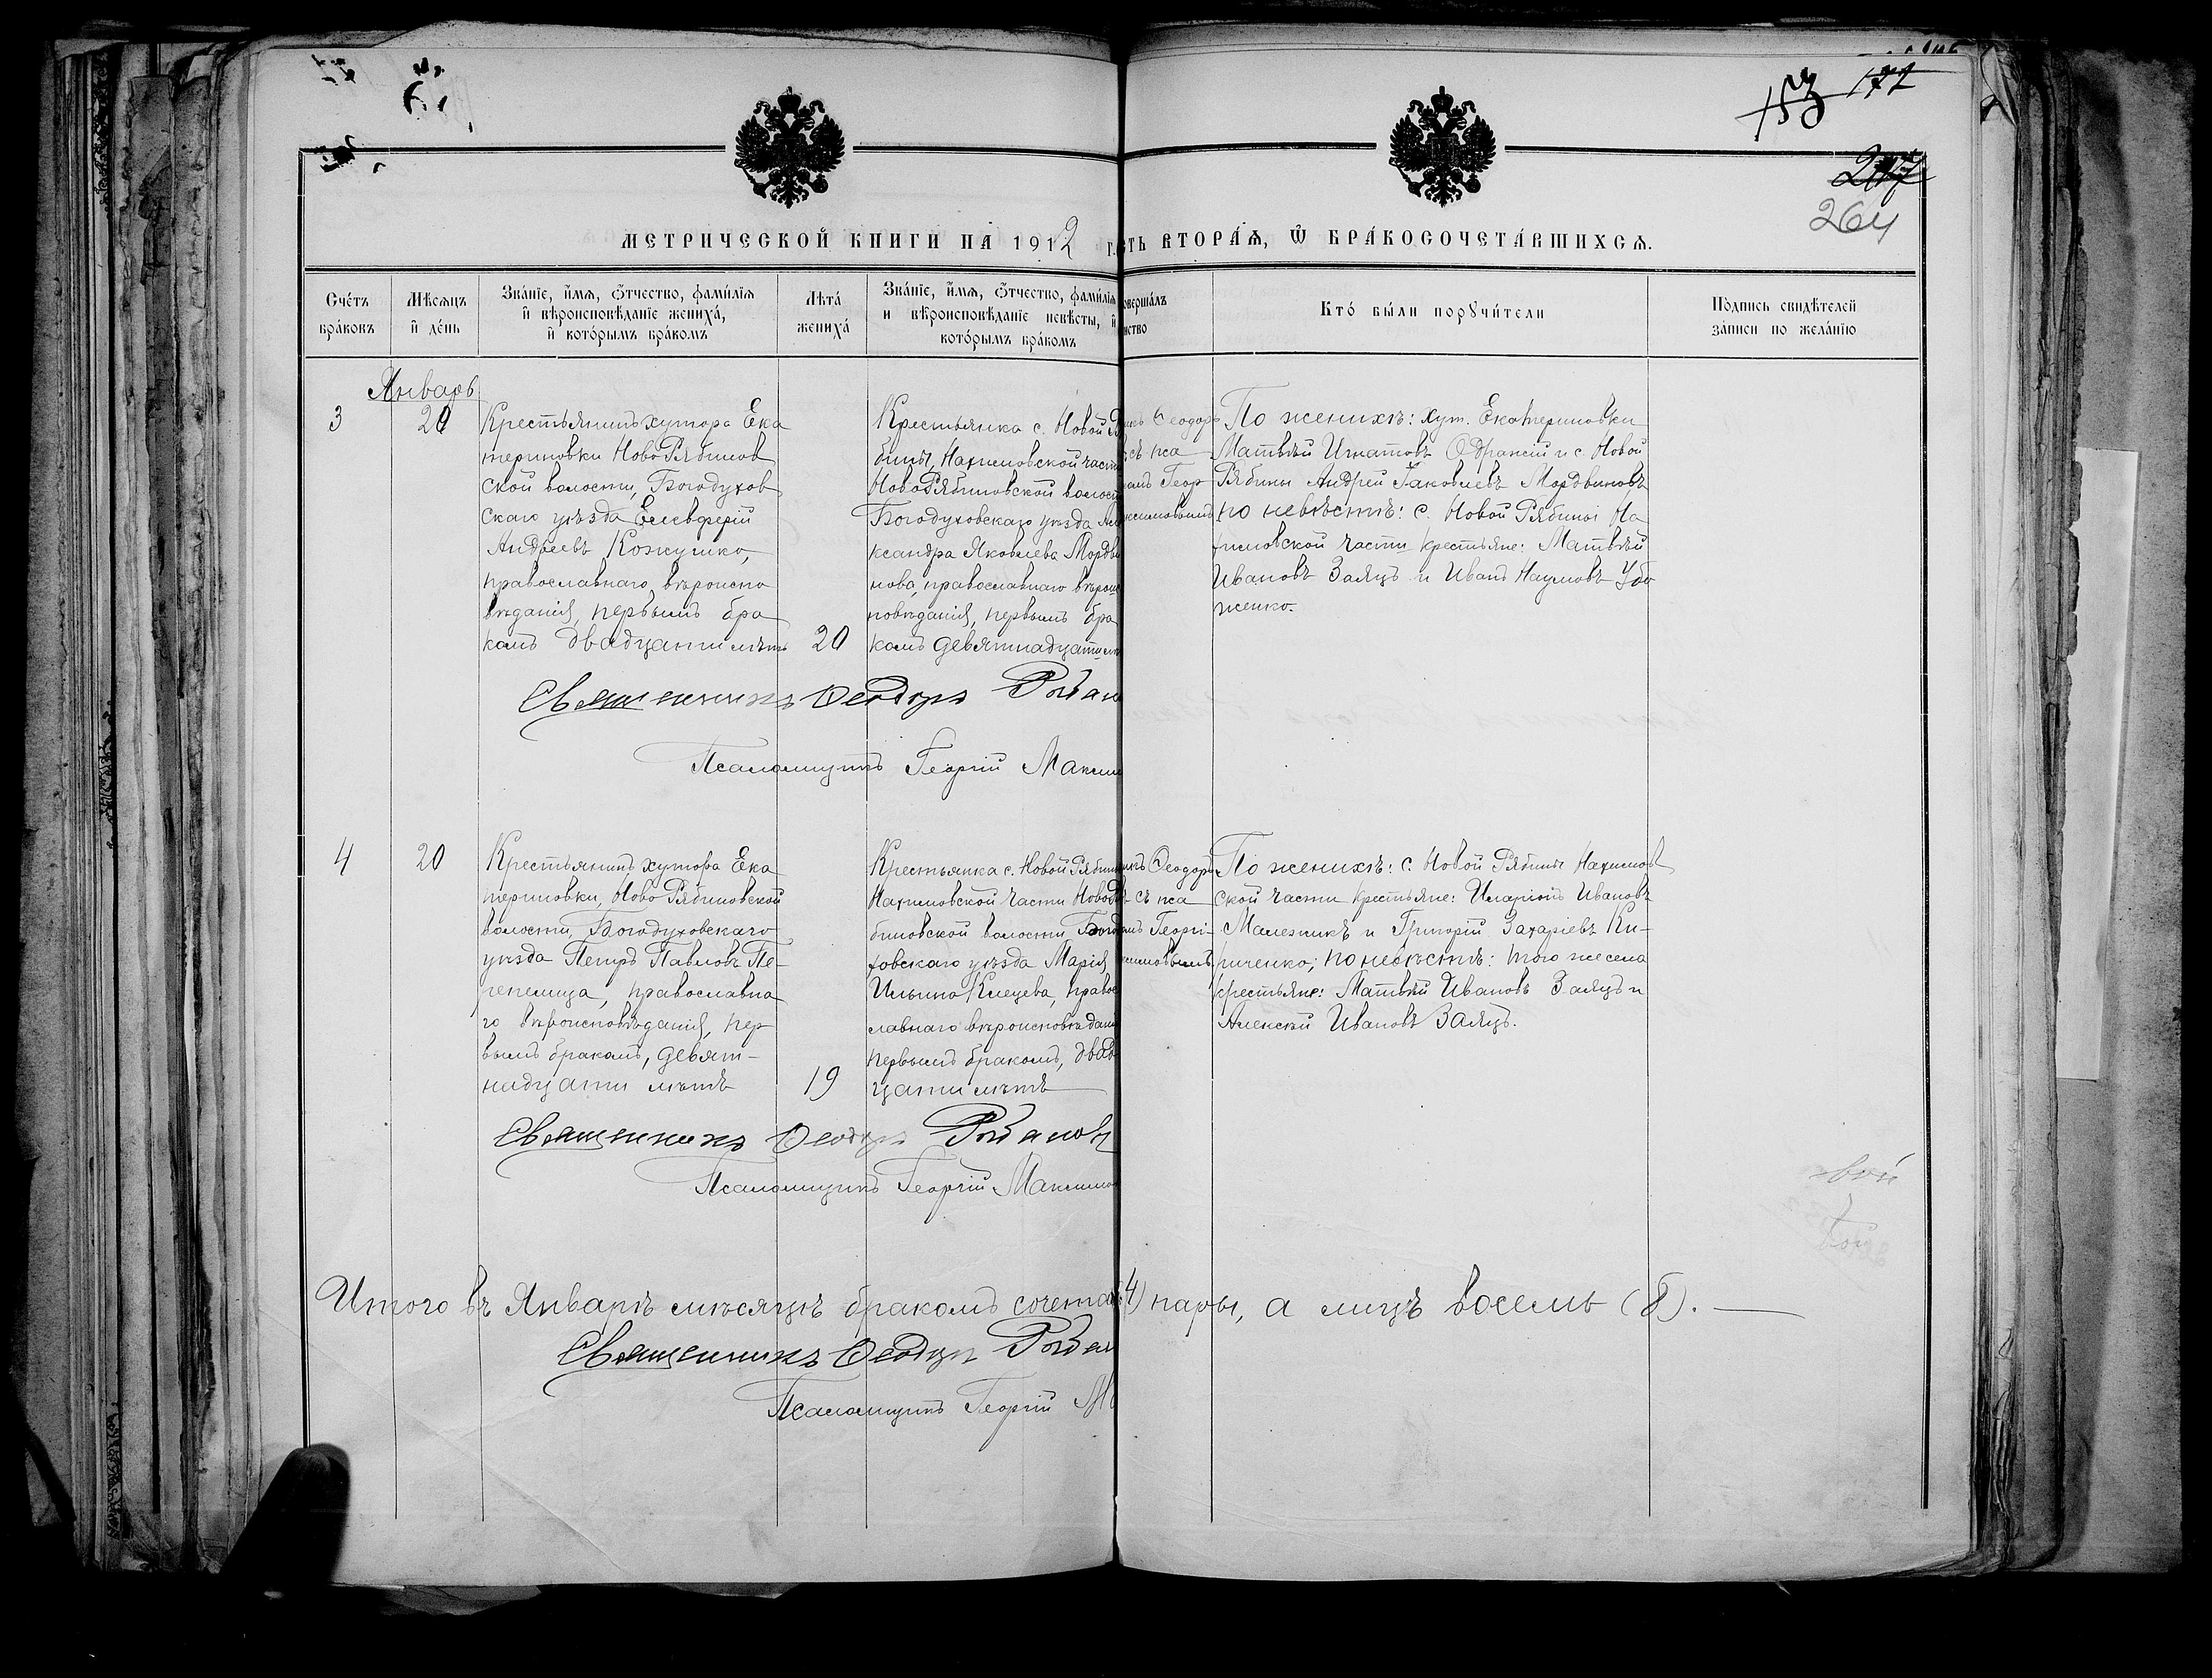 153 172
217
264
МЕТРИЧЕСКОЙ КНИГИ НА 1912 г.
сть вторáѧ, ѿ брáкосочетáвшихсѧ.
Счéтъ брáковъ
Мѣсѧцъ и҆ дéнь
Звáнїе, и҆́мѧ, ѻ҆́тчество, фамѝлїѧ и҆ вѣроисповѣ́данїе женихá, и҆ котóрымъ брáкомъ
Лѣтá женихá
Звáнїе, и҆́мѧ, ѻ҆́тчество, фамѝлїѧ и вѣроисповѣ́данїе невѣ́сты, и҆ котóрымъ брáкомъ
овершáлъ
нство
Ктó бы́ли порꙋчи́тели
Пóдпись свидѣ́телей зáписи по желáнїю
Январь
3
20
Крестьянинъ хутора Ека
териновки Ново Рябинов
ской волости, Богодухов
скаго уѣзда Елевферій
Андреевъ Кожушко,
православнаго вѣроиспо
вѣданія, первымъ бра
комъ двадцати лѣтъ
20
Крестьянка с. Новой Ря
бины, Нахимовской части
Ново Рябиновской волост
Богодуховскаго уѣзда Але
ксандра Яковлева Мордви
нова, православнаго вѣроис
повѣданія, первымъ бра
комъ девятнадцати лѣ
икъ Ѳеодоръ
съ пса
омъ Геор
ксимовымъ
По женихѣ: хут. Екатериновки
Матвѣй Игнатовъ Одранскій и с. Новой
Рябины Андрей Яковлевъ Мордвиновъ
по невѣстѣ: с. Новой Рябины На
химовской части крестьяне: Матвѣй
Ивановъ Заяцъ и Иванъ Наумовъ Убо
женко.
Священникъ Ѳеодоръ
Псаломщикъ Георгій Максим
4
20
Крестьянинъ хутора Ека
териновки, Ново Рябиновской
волости, Богодуховскаго
уѣзда Петръ Павловъ Пе-
репелица, православна
го вѣроисповѣданія, пер
вымъ бракомъ, девят-
надцати лѣтъ
19
Крестьянка с. Новой Рябин
Нахимовской части НовоРя
биновской волости Богоду
ховскаго уѣзда Марія
Ильина Клецева, право
славнаго вѣроисповѣдан
первымъ бракомъ, двад
цати лѣтъ
икъ Ѳеодоръ
съ пса
омъ Георгі-
ксимовымъ
По женихѣ: с. Новой Рябины Нахимов
ской части крестьяне: Иларіонъ Ивановъ
Малезникъ и Григорій Захаріевъ Ки-
риченко; по невѣстѣ: того же села
крестьяне: Матвѣй Ивановъ Заяцъ и
Алексѣй Ивановъ Заяцъ.
Священникъ Ѳеодоръ
Псаломщикъ Георгій Максимо
Итого въ Январѣ мѣсяцѣ бракомъ сочета 4) пары, а лицъ восемь (8).
Священникъ Ѳеодоръ
Псаломщикъ Георгій М